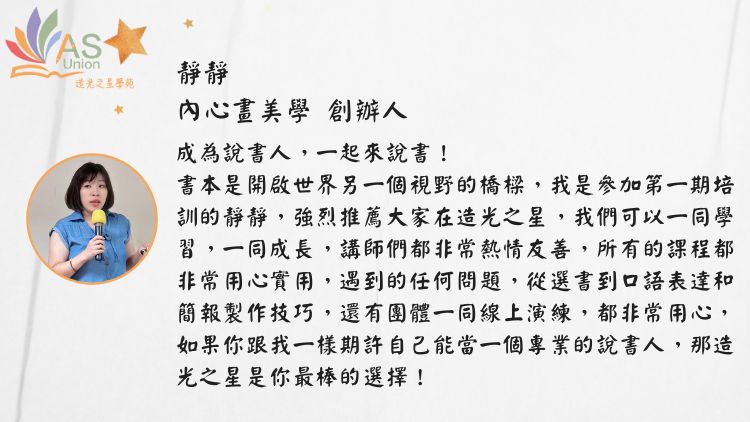 AS
Union
造光之星學苑
靜靜
內心畫美學 創辦人
成為說書人，一起來說書！
書本是開啟世界另一個視野的橋樑，我是參加第一期培
訓的靜靜，強烈推薦大家在造光之星，我們可以一同學
習，一同成長，講師們都非常熱情友善，所有的課程都
非常用心實用，遇到的任何問題，從選書到口語表達和
簡報製作技巧，還有團體一同線上演練，都非常用心，
如果你跟我一樣期許自己能當一個專業的說書人，那造
光之星是你最棒的選擇！